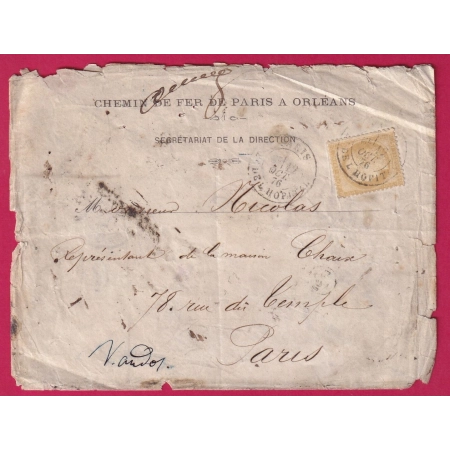 CHEMIN DE FER DE PARIS A ORLÉANS
SECRÉTARIAT DE LA DIRECTION
PARIS
DE L'HOPITAL
76
Monsieur Nicolas
Représentant de la maison Chaix
78 rue du Temple
Paris